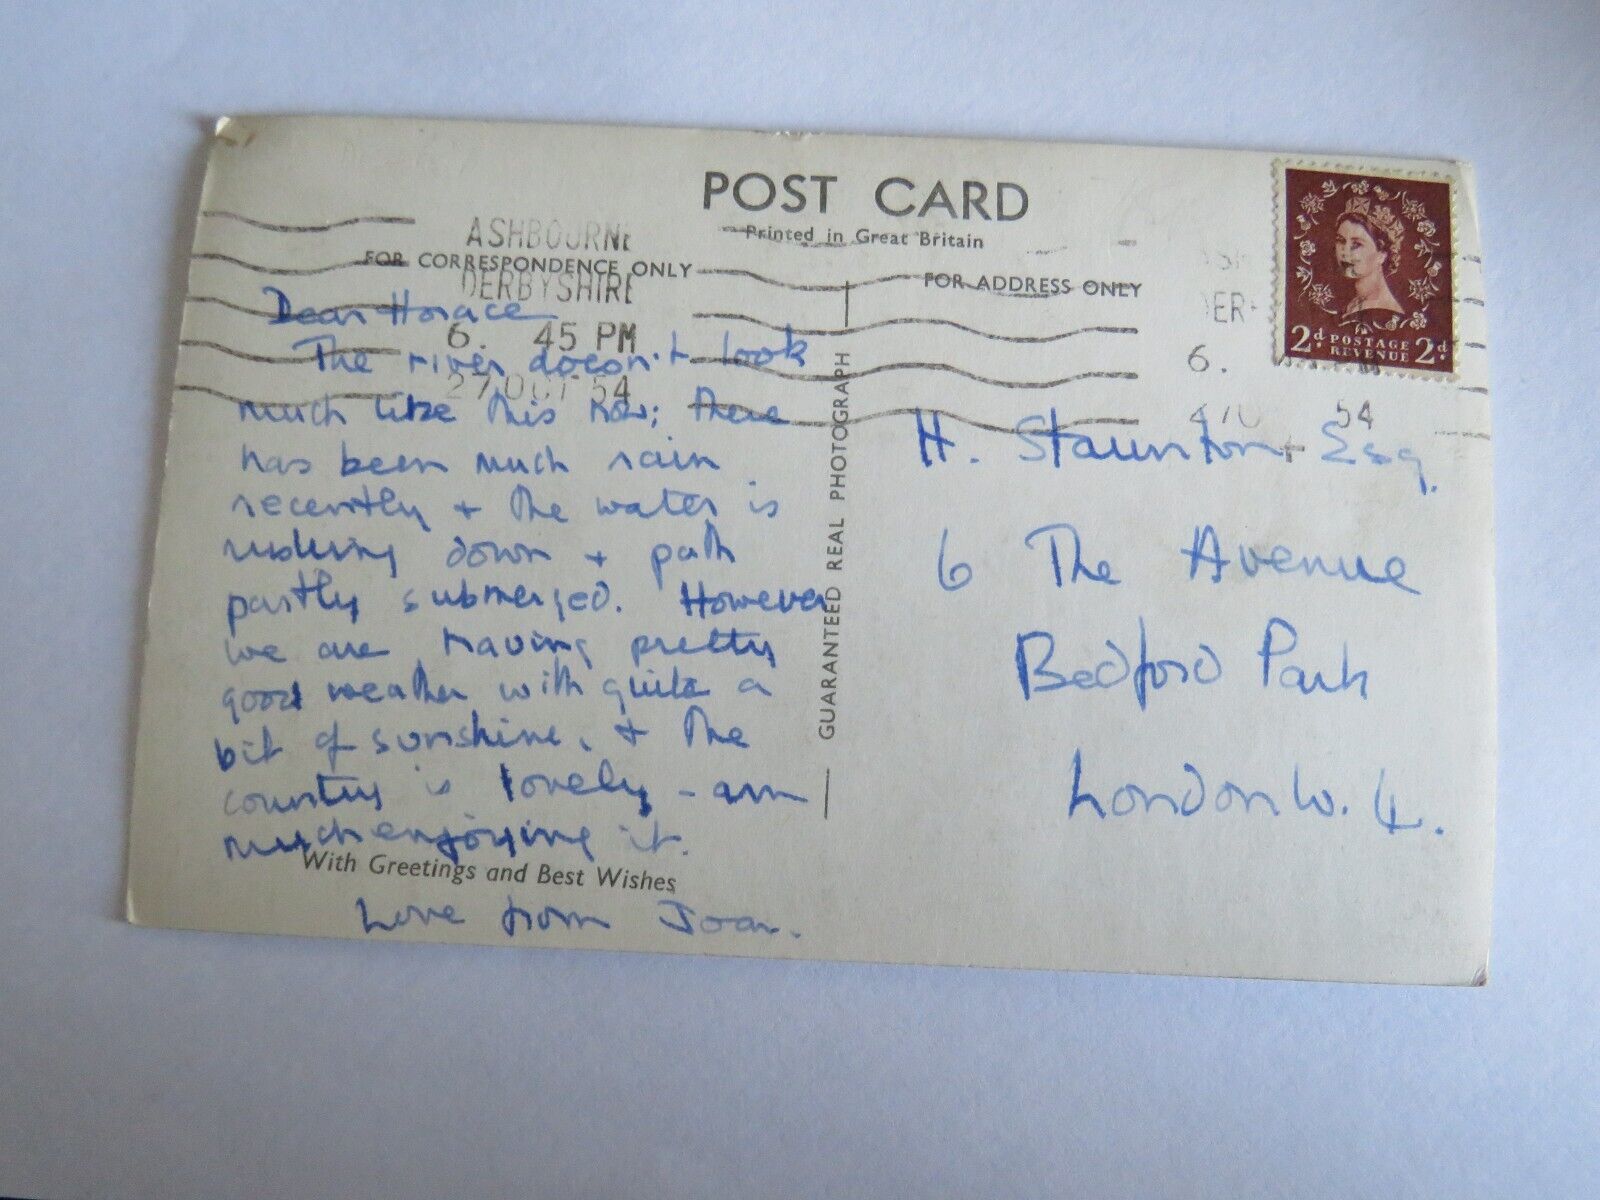 POST CARD
Printed in Great Britain
FOR CORRESPONDENCE ONLY
FOR ADDRESS ONLY
ASHBOURNE
DERBYSHIRE
6. 45 PM
27 OCT 54
6.
54
2d POSTAGE REVENUE 2d
Dear Horace
The river doesn't look
much like this now; there
has been much rain
recently + the water is
rushing down + path
partly submerged. However
we are having pretty
good weather with quite a
bit of sunshine, + the
country is lovely - am
much enjoying it.
With Greetings and Best Wishes
Love from Joan.
GUARANTEED REAL PHOTOGRAPH
H. Staunton Esq.
6 The Avenue
Bedford Park
London W. 4.